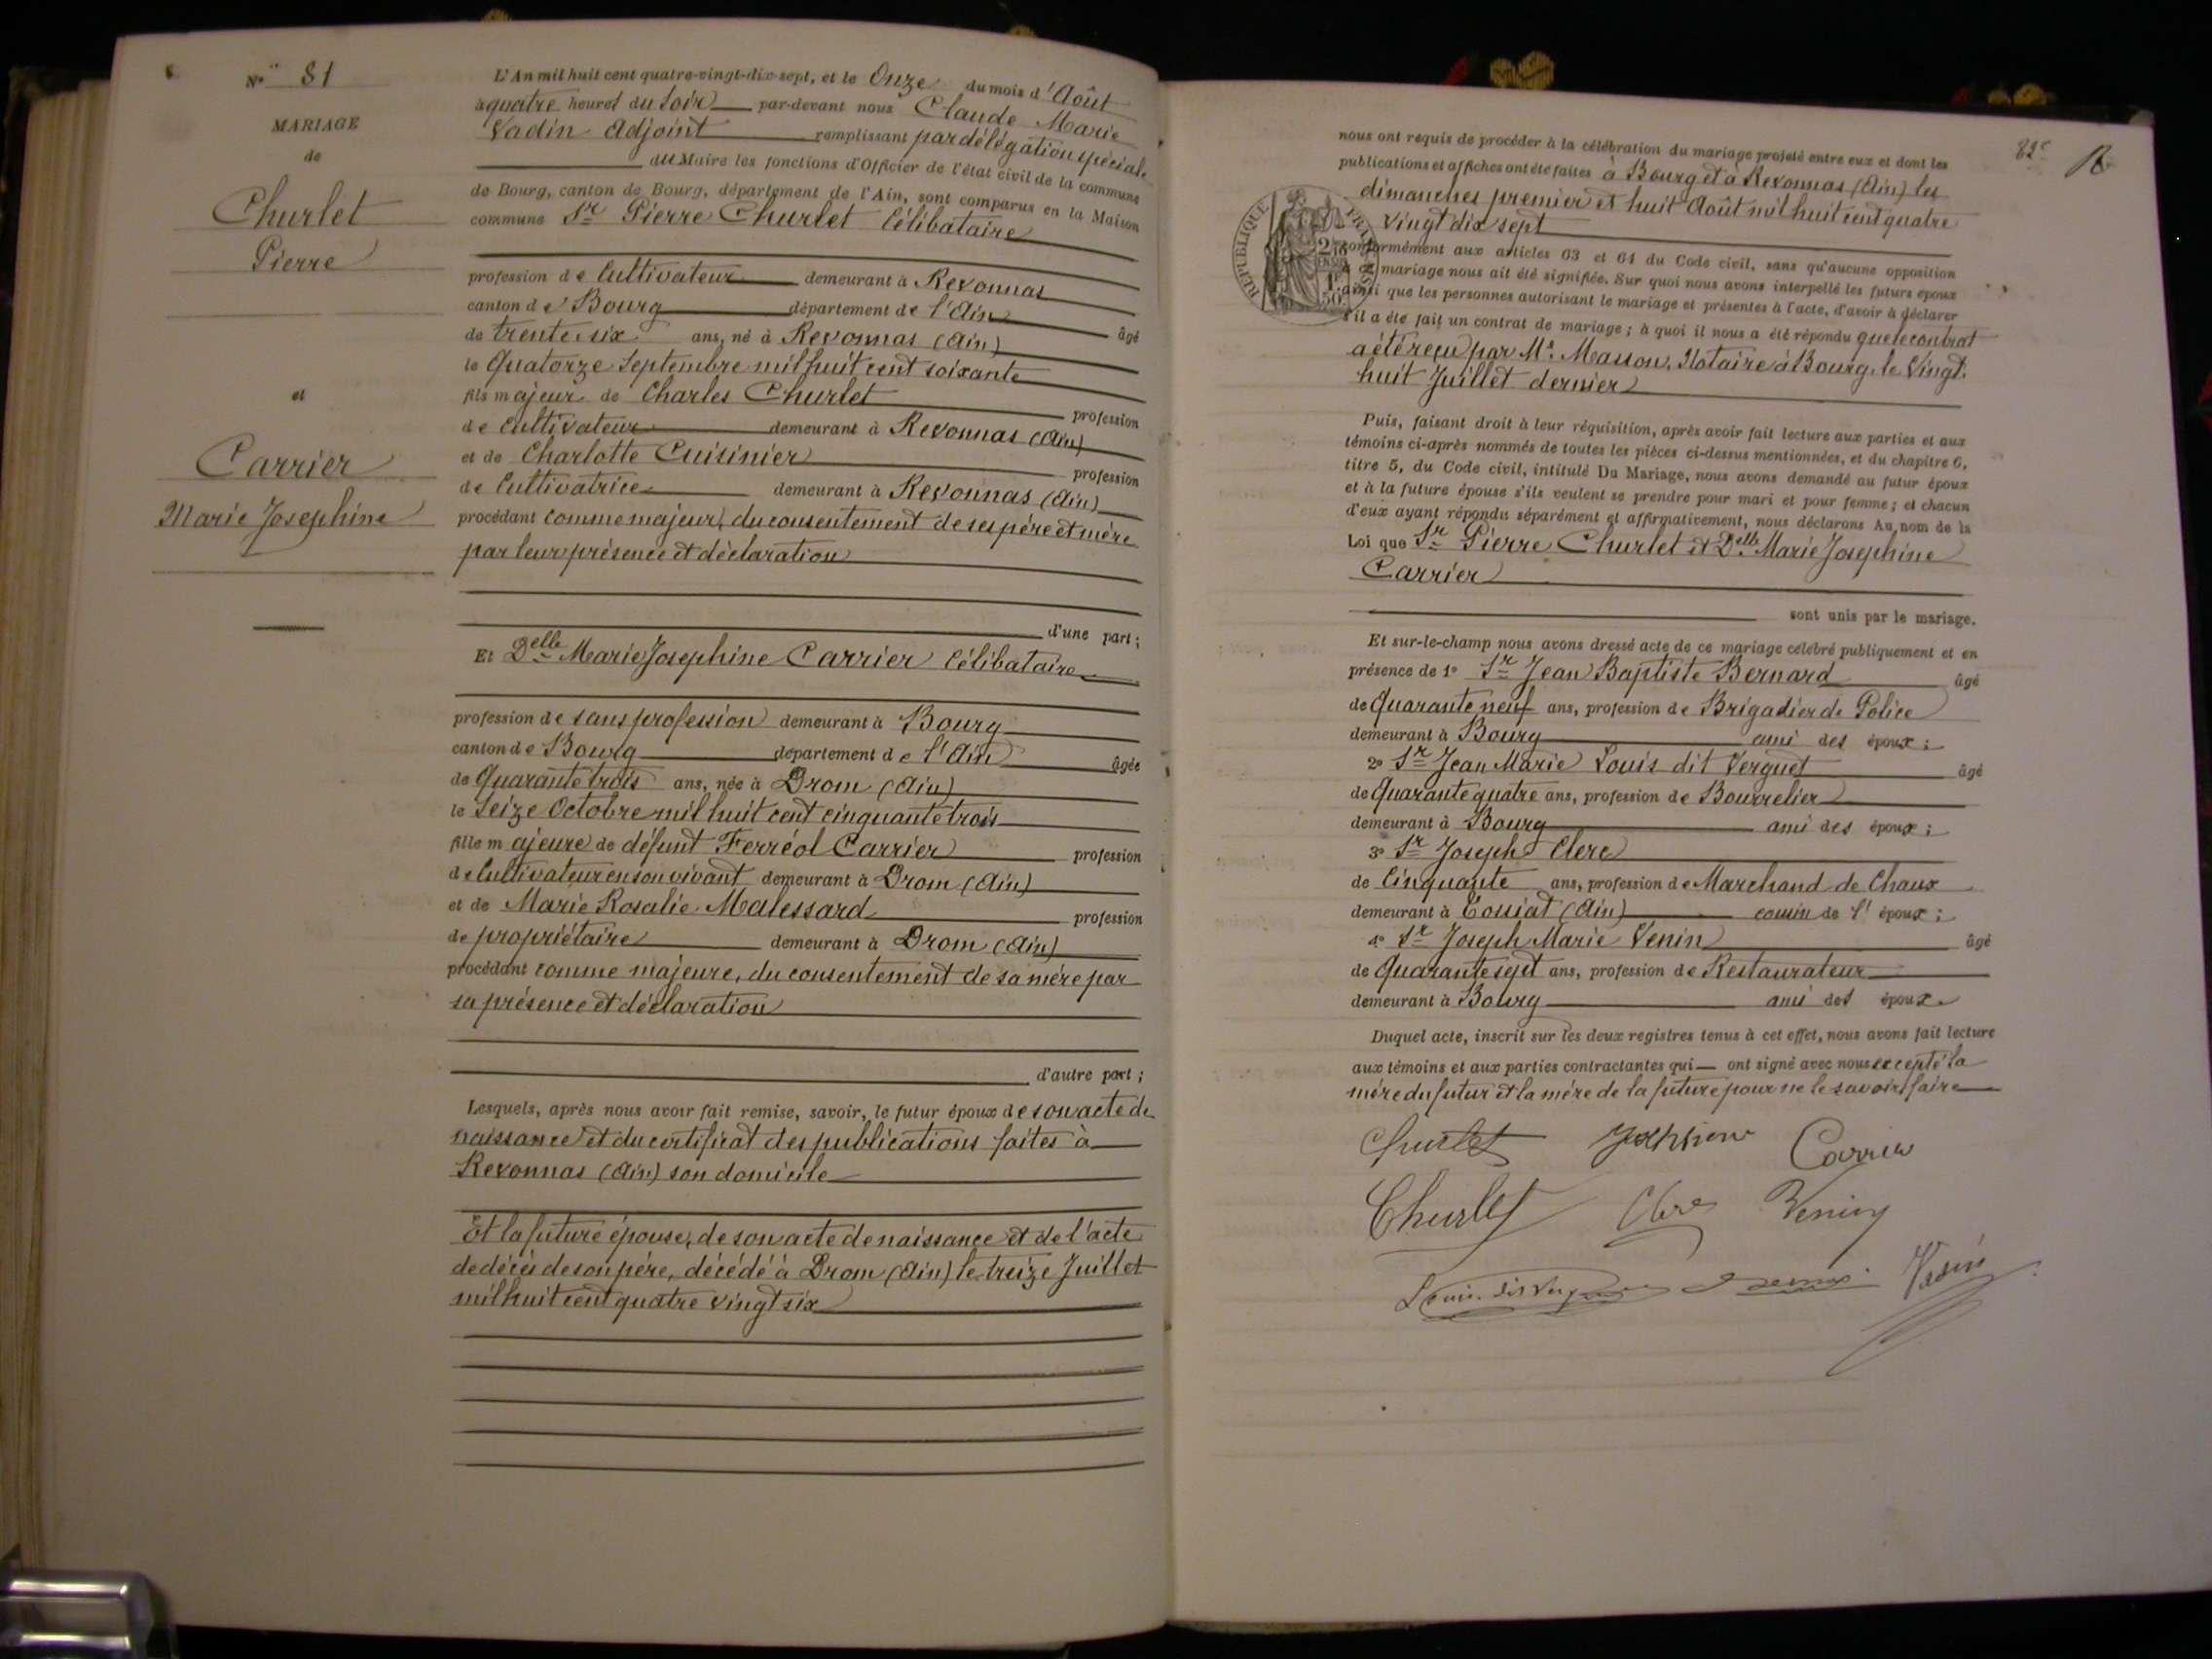 N° 81
MARIAGE
de
Churlet
Pierre
et
Carrier
Marie Josephine
L'An mil huit cent quatre-vingt-dix-sept, et le Onze du mois d'Août
à quatre heures du soir par-devant nous Claude Marie
Vadin Adjoint remplissant par délégation spéciale
du Maire les fonctions d'Officier de l'état civil de la commune
de Bourg, canton de Bourg, département de l'Ain, sont comparus en la Maison
commune Sr Pierre Churlet Célibataire
profession de Cultivateur demeurant à Revonnas
canton de Bourg département de l'Ain âgé
de trente six ans, né à Revonnas (Ain)
le Quatorze Septembre mil huit cent soixante
fils majeur de Charles Churlet profession
de Cultivateur demeurant à Revonnas (Ain)
et de Charlotte Cuisinier profession
de Cultivatrice demeurant à Revonnas (Ain)
procédant comme majeur, du consentement de ses père et mère
par leur présence et déclaration
d'une part ;
Et Delle Marie Josephine Carrier Célibataire
profession de sans profession demeurant à Bourg
canton de Bourg département de l'Ain âgée
de Quarante trois ans, née à Drom (Ain)
le Seize Octobre mil huit cent cinquante trois
fille majeure de défunt Ferréol Carrier profession
de Cultivateur en son vivant demeurant à Drom (Ain)
et de Marie Rosalie Malessard profession
de propriétaire demeurant à Drom (Ain)
procédant comme majeure, du consentement de sa mère par
sa présence et déclaration
d'autre part ;
Lesquels, après nous avoir fait remise, savoir, le futur époux de son acte de
naissance et du certificat des publications faites à
Revonnas (Ain) son domicile
Et la future épouse, de son acte de naissance et de l'acte
de décès de son père, décédé à Drom (Ain) le treize Juillet
mil huit cent quatre vingt six
82e
nous ont requis de procéder à la célébration du mariage projeté entre eux et dont les
publications et affiches ont été faites à Bourg et à Revonnas (Ain) les
dimanches premier et huit Août mil huit cent quatre
vingt dix sept
RÉPUBLIQUE FRANÇAISE
conformément aux articles 63 et 64 du Code civil, sans qu'aucune opposition
mariage nous ait été signifiée. Sur quoi nous avons interpellé les futurs époux
ainsi que les personnes autorisant le mariage et présentes à l'acte, d'avoir à déclarer
s'il a été fait un contrat de mariage ; à quoi il nous a été répondu que le contrat
a été reçu par Me Masson, Notaire à Bourg, le Vingt
huit Juillet dernier
Puis, faisant droit à leur réquisition, après avoir fait lecture aux parties et aux
témoins ci-après nommés de toutes les pièces ci-dessus mentionnées, et du chapitre 6,
titre 5, du Code civil, intitulé Du Mariage, nous avons demandé au futur époux
et à la future épouse s'ils veulent se prendre pour mari et pour femme ; et chacun
d'eux ayant répondu séparément et affirmativement, nous déclarons Au nom de la
Loi que Sr Pierre Churlet et Delle Marie Josephine
Carrier
sont unis par le mariage.
Et sur-le-champ nous avons dressé acte de ce mariage célébré publiquement et en
présence de 1° Sr Jean Baptiste Bernard âgé
de Quarante neuf ans, profession de Brigadier de Police
demeurant à Bourg ami des époux ;
2° Sr Jean Marie Louis dit Verguet âgé
de Quarante quatre ans, profession de Bourrelier
demeurant à Bourg ami des époux ;
3° Sr Joseph Clerc
de Cinquante ans, profession de Marchand de Chaux
demeurant à Tossiat (Ain) cousin de l'époux ;
4° Sr Joseph Marie Venin âgé
de Quarante sept ans, profession de Restaurateur
demeurant à Bourg ami des époux
Duquel acte, inscrit sur les deux registres tenus à cet effet, nous avons fait lecture
aux témoins et aux parties contractantes qui ont signé avec nous excepté la
mère du futur et la mère de la future pour ne le savoir faire
Churlet Carrier
Churlet Clerc Venin
Louis dit Verguet Vadin